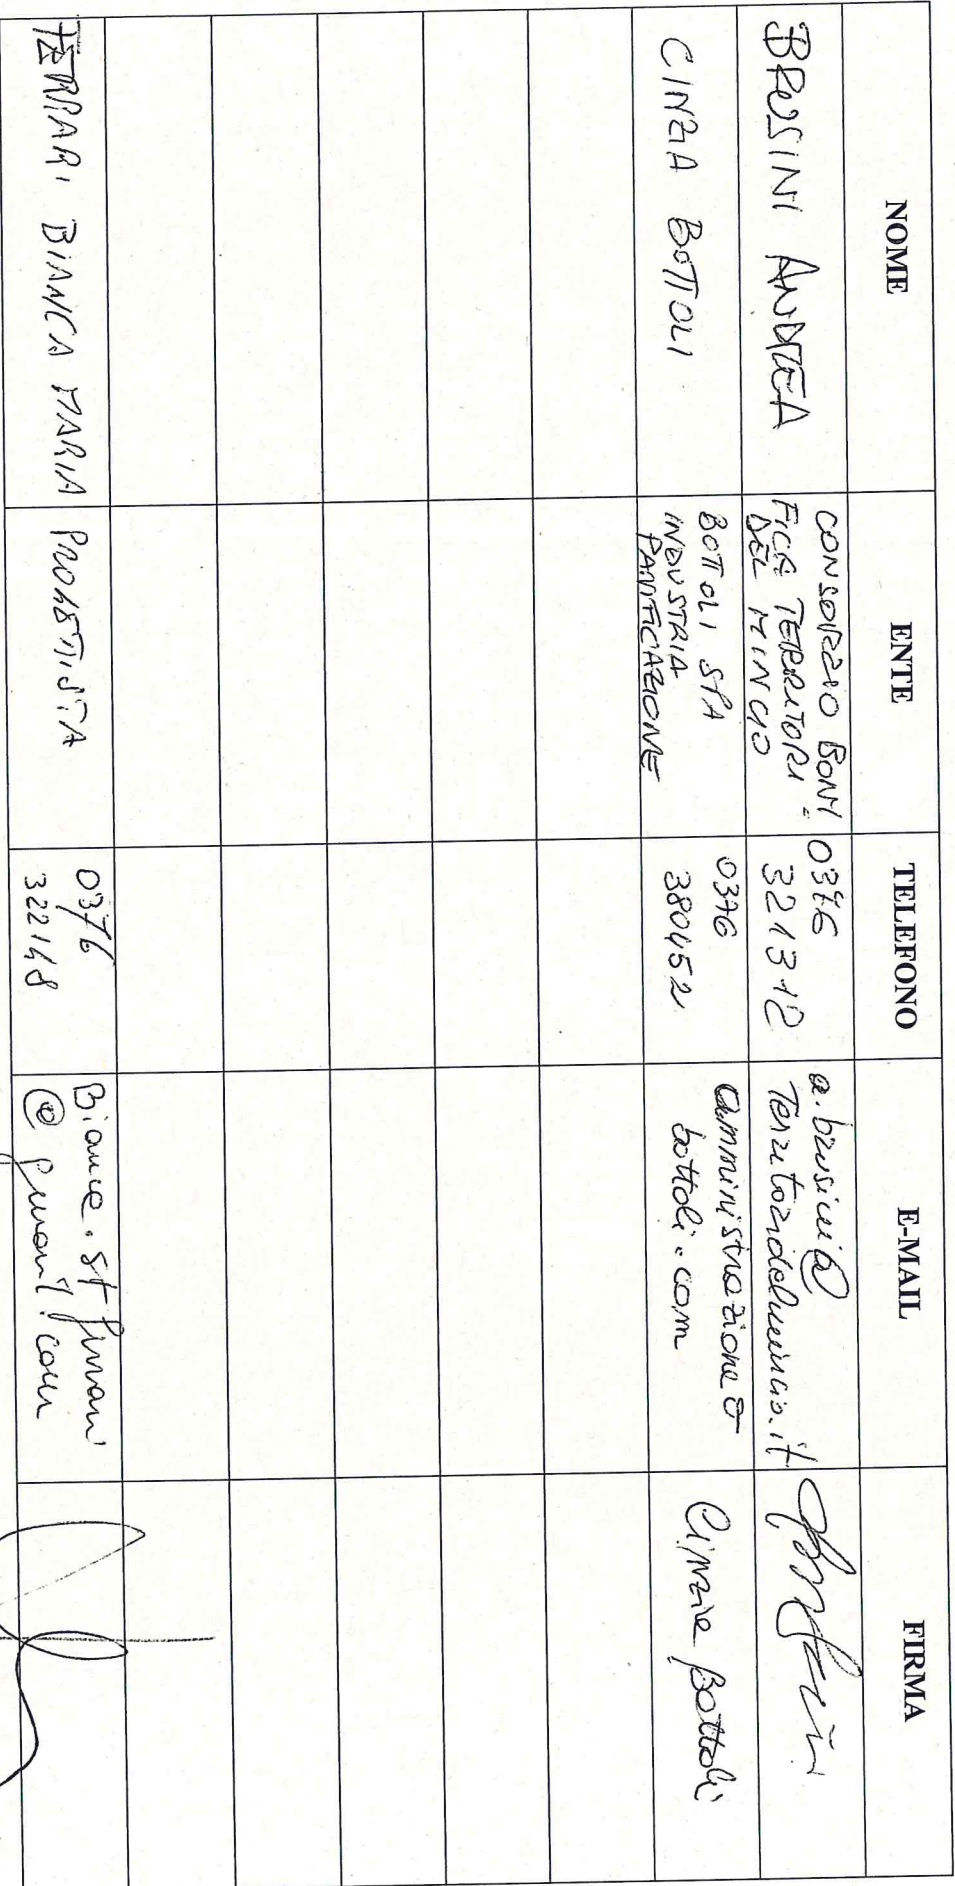 NOME ENTE TELEFONO E-MAIL FIRMA
BRUSINI ANDREA
CONSORZIO BONI
FICA TERRITORI
DEL MINCIO
0376
321312
a.brusini@
Territoridelmincio.it
CINZIA BOTTOLI
BOTTOLI SPA
INDUSTRIA
PANIFICAZIONE
0376
380452
amministrazione@
bottoli.com
Cinzia Bottoli
FERRARI BIANCA MARIA
PROGETTISTA
0376
322148
@gmail.com